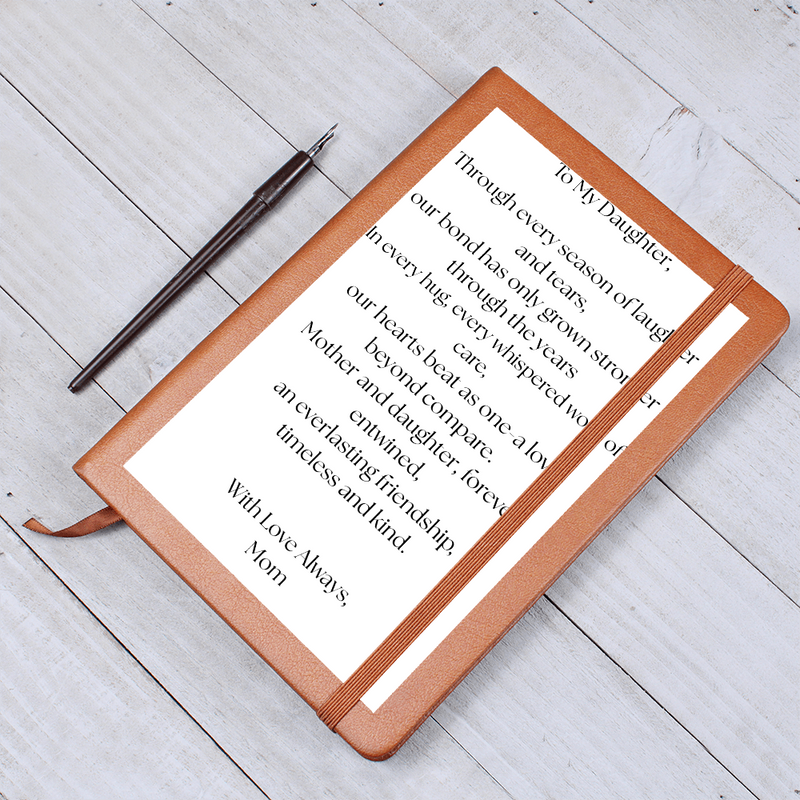 To My Daughter,
Through every season of laughter
and tears,
our bond has only grown stronger
through the years
In every hug, every whispered word of
care,
our hearts beat as one-a love
beyond compare.
Mother and daughter, forever
entwined,
an everlasting friendship,
timeless and kind.
With Love Always,
Mom